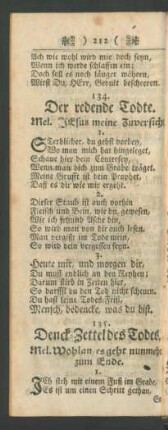 ( ) 212 ( )
Ach wie wohl wird mir doch seyn,
Wenn ich werde schlaffen ein;
Doch soll es noch länger währen,
Wirst Du, HErr, Gedult bescheeren.
134.
Der redende Todte.
Mel. JEsus meine Zuversicht
1.
STerblicher, du gehst vorbey,
Wo man mich hat hingeleget,
Schaue hier dein Conterfey,
Wenn man dich zum Grabe träget.
Meine Grufft ist dein Prophet,
Daß es dir wie mir ergeht.
2.
Dieser Staub ist auch vorhin
Fleisch und Bein, wie du, gewesen,
Wie ich jetzund Asche bin,
So wird man von dir auch lesen.
Man vergaß im Tode mein,
So wird dein vergessen seyn.
3.
Heute mir, und morgen dir,
Du must endlich an den Reyhen;
Darum stirb in Zeiten hier,
So darffst du den Tod nicht scheuen.
Du hast keine Todes-Frist,
Mensch, bedencke, was du bist.
135.
Denck-Zettel des Todes.
Mel. Wohlan es geht nunmehr
zum Ende.
1.
ICh steh mit einem Fuß im Grabe,
Es ist um einen Schritt gethan,